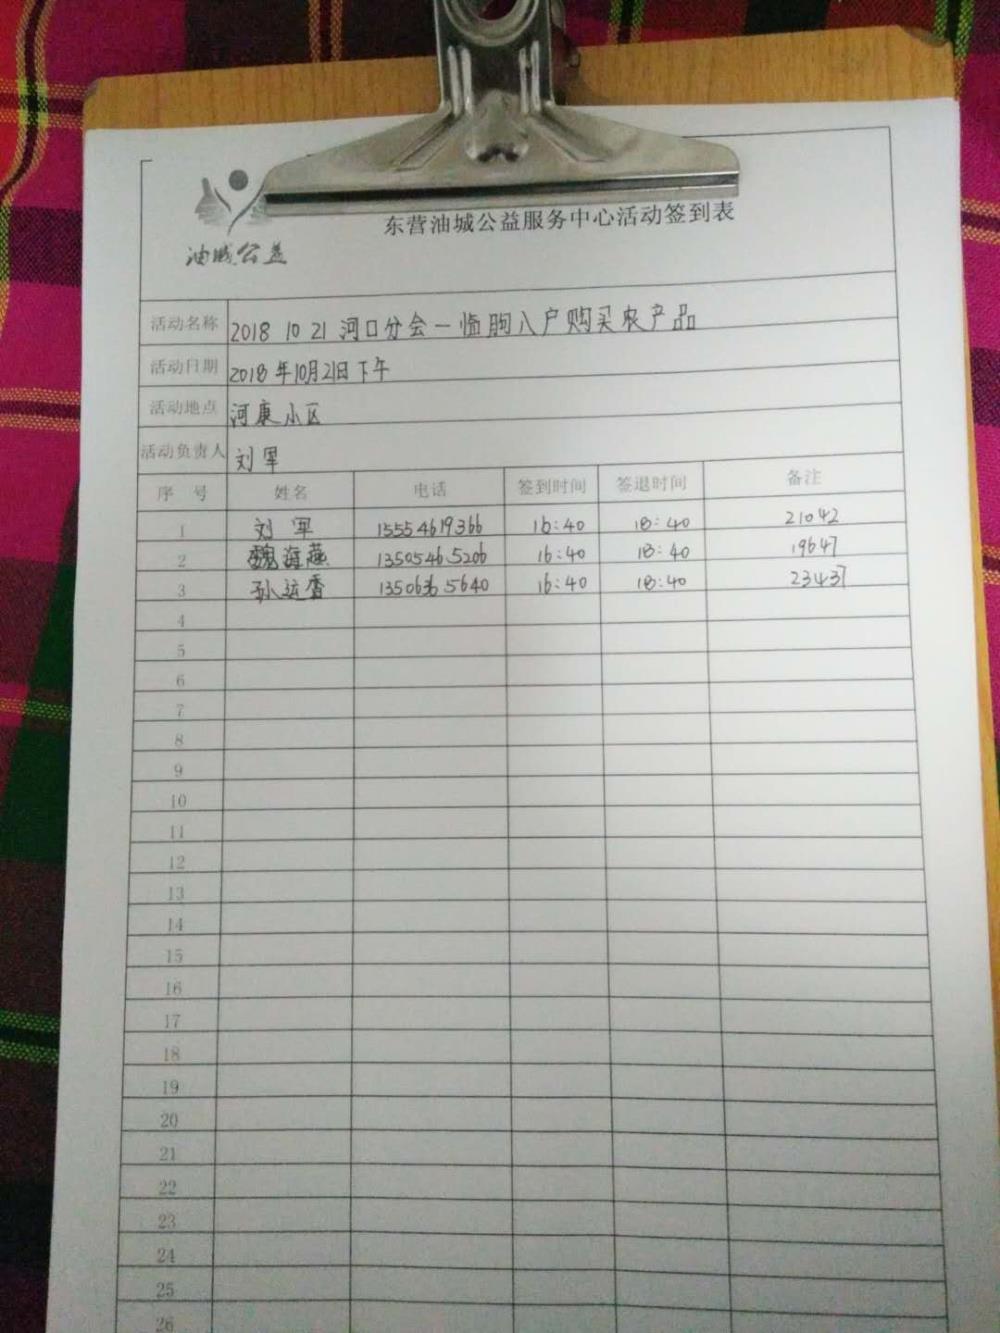 油城公益
东营油城公益服务中心活动签到表
活动名称 2018 10 21 河口分会一临朐入户购买农产品
活动日期 2018年10月21日下午
活动地点 河康小区
活动负责人 刘军
序号 姓名 电话 签到时间 签退时间 备注
1 刘军 15554619366 16:40 18:40 21042
2 魏海燕 13505465206 16:40 18:40 19647
3 孙运香 13506365640 16:40 18:40 23437
4
5
6
7
8
9
10
11
12
13
14
15
16
17
18
19
20
21
22
23
24
25
26